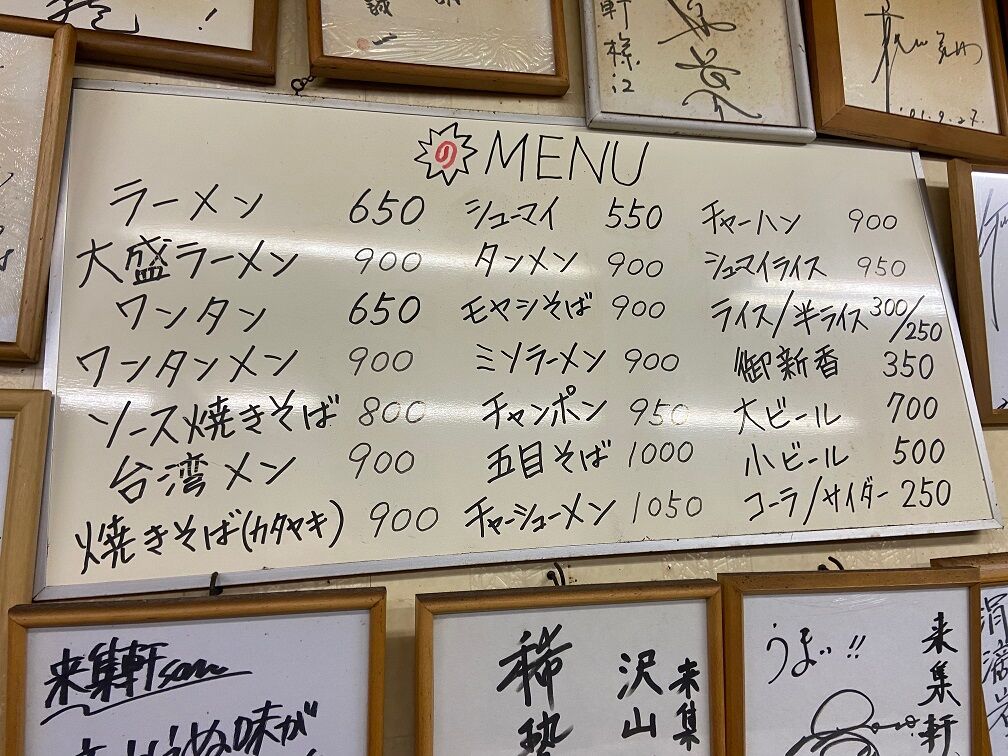 誠一
軒様江
'01.9.27
のMENU
ラーメン 650
大盛ラーメン 900
ワンタン 650
ワンタンメン 900
ソース焼きそば 800
台湾メン 900
焼きそば(カタヤキ) 900
シューマイ 550
タンメン 900
モヤシそば 900
ミソラーメン 900
チャンポン 950
五目そば 1000
チャーシューメン 1050
チャーハン 900
シューマイライス 950
ライス/半ライス 300/250
御新香 350
大ビール 700
小ビール 500
コーラ/サイダー 250
来集軒さん
味が
来集
沢山
来集軒
うまい!!